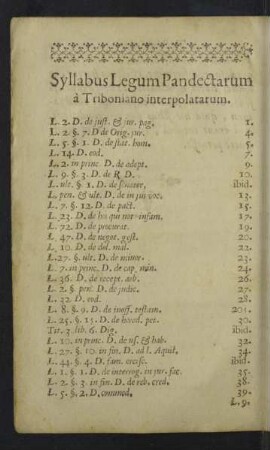 Syllabus Legum Pandectarum
à Triboniano interpolatarum.
L. 2. D. de just. & jur. pag. 1.
L. 2. §. 7. D de Orig. jur. 4.
L. 5. §. 1. D. de stat. hom. 5.
L. 14. D. eod. 7.
L. 2. in princ. D. de adopt. 9.
L. 9. §. 3. D. de R D. 10.
L. ult. §. 1. D. de ibid.
L. pen. & ult. D. de in jus voc. 13.
L. 7. §. 12. D. de pact. 15.
L. 23. D. de his qui not. infam. 17.
L. 72. D. de procurat. 19.
L. 47. D. de negot. gest. 20.
L. 10. D. de dol. mal. 22.
L. 27. §. ult. D. de minor. 23.
L. 7. in princ. D. de cap. min. 24.
L. 36. D. de recept. arb. 26.
L. 2. §. pen. D. de judic. 27.
L. 32. D. eod. 28.
L. 8. §. 9. D. de inoff. testam. 201.
L. 25. §. 15. D. de hered. pet. 30.
Tit. 3. lib. 6. Dig. ibid.
L. 10. in princ. D. de us. & hab. 32.
L. 27. §. 10. in fin. D. ad l. Aquil. 34.
L. 44. §. 4. D. fam. ercisc. ibid.
L. 1. §. 1. D. de interrog. in jur. fac. 35.
L. 2. §. 3. in fin. D. de reb. cred. 38.
L. 5. §. 2. D. commod. 39.
L. 9.